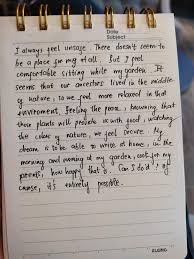 Date
Subject
I always feel unsafe. There doesn't seem to
be a place for my at all. But I feel
comfortable sitting while my garden. It
seems that our ancestors lived in the middle
of nature, so we feel more relaxed in that
environment, feeling the peace, knowing that
these plants will provide us with food, watching
the colour of nature, we feel secure. My
dream is to be able to write at home, in the
morning and evening at my garden, cook for my
parents, how happy that is. Can I do it? My
cause, it's entirely possible.